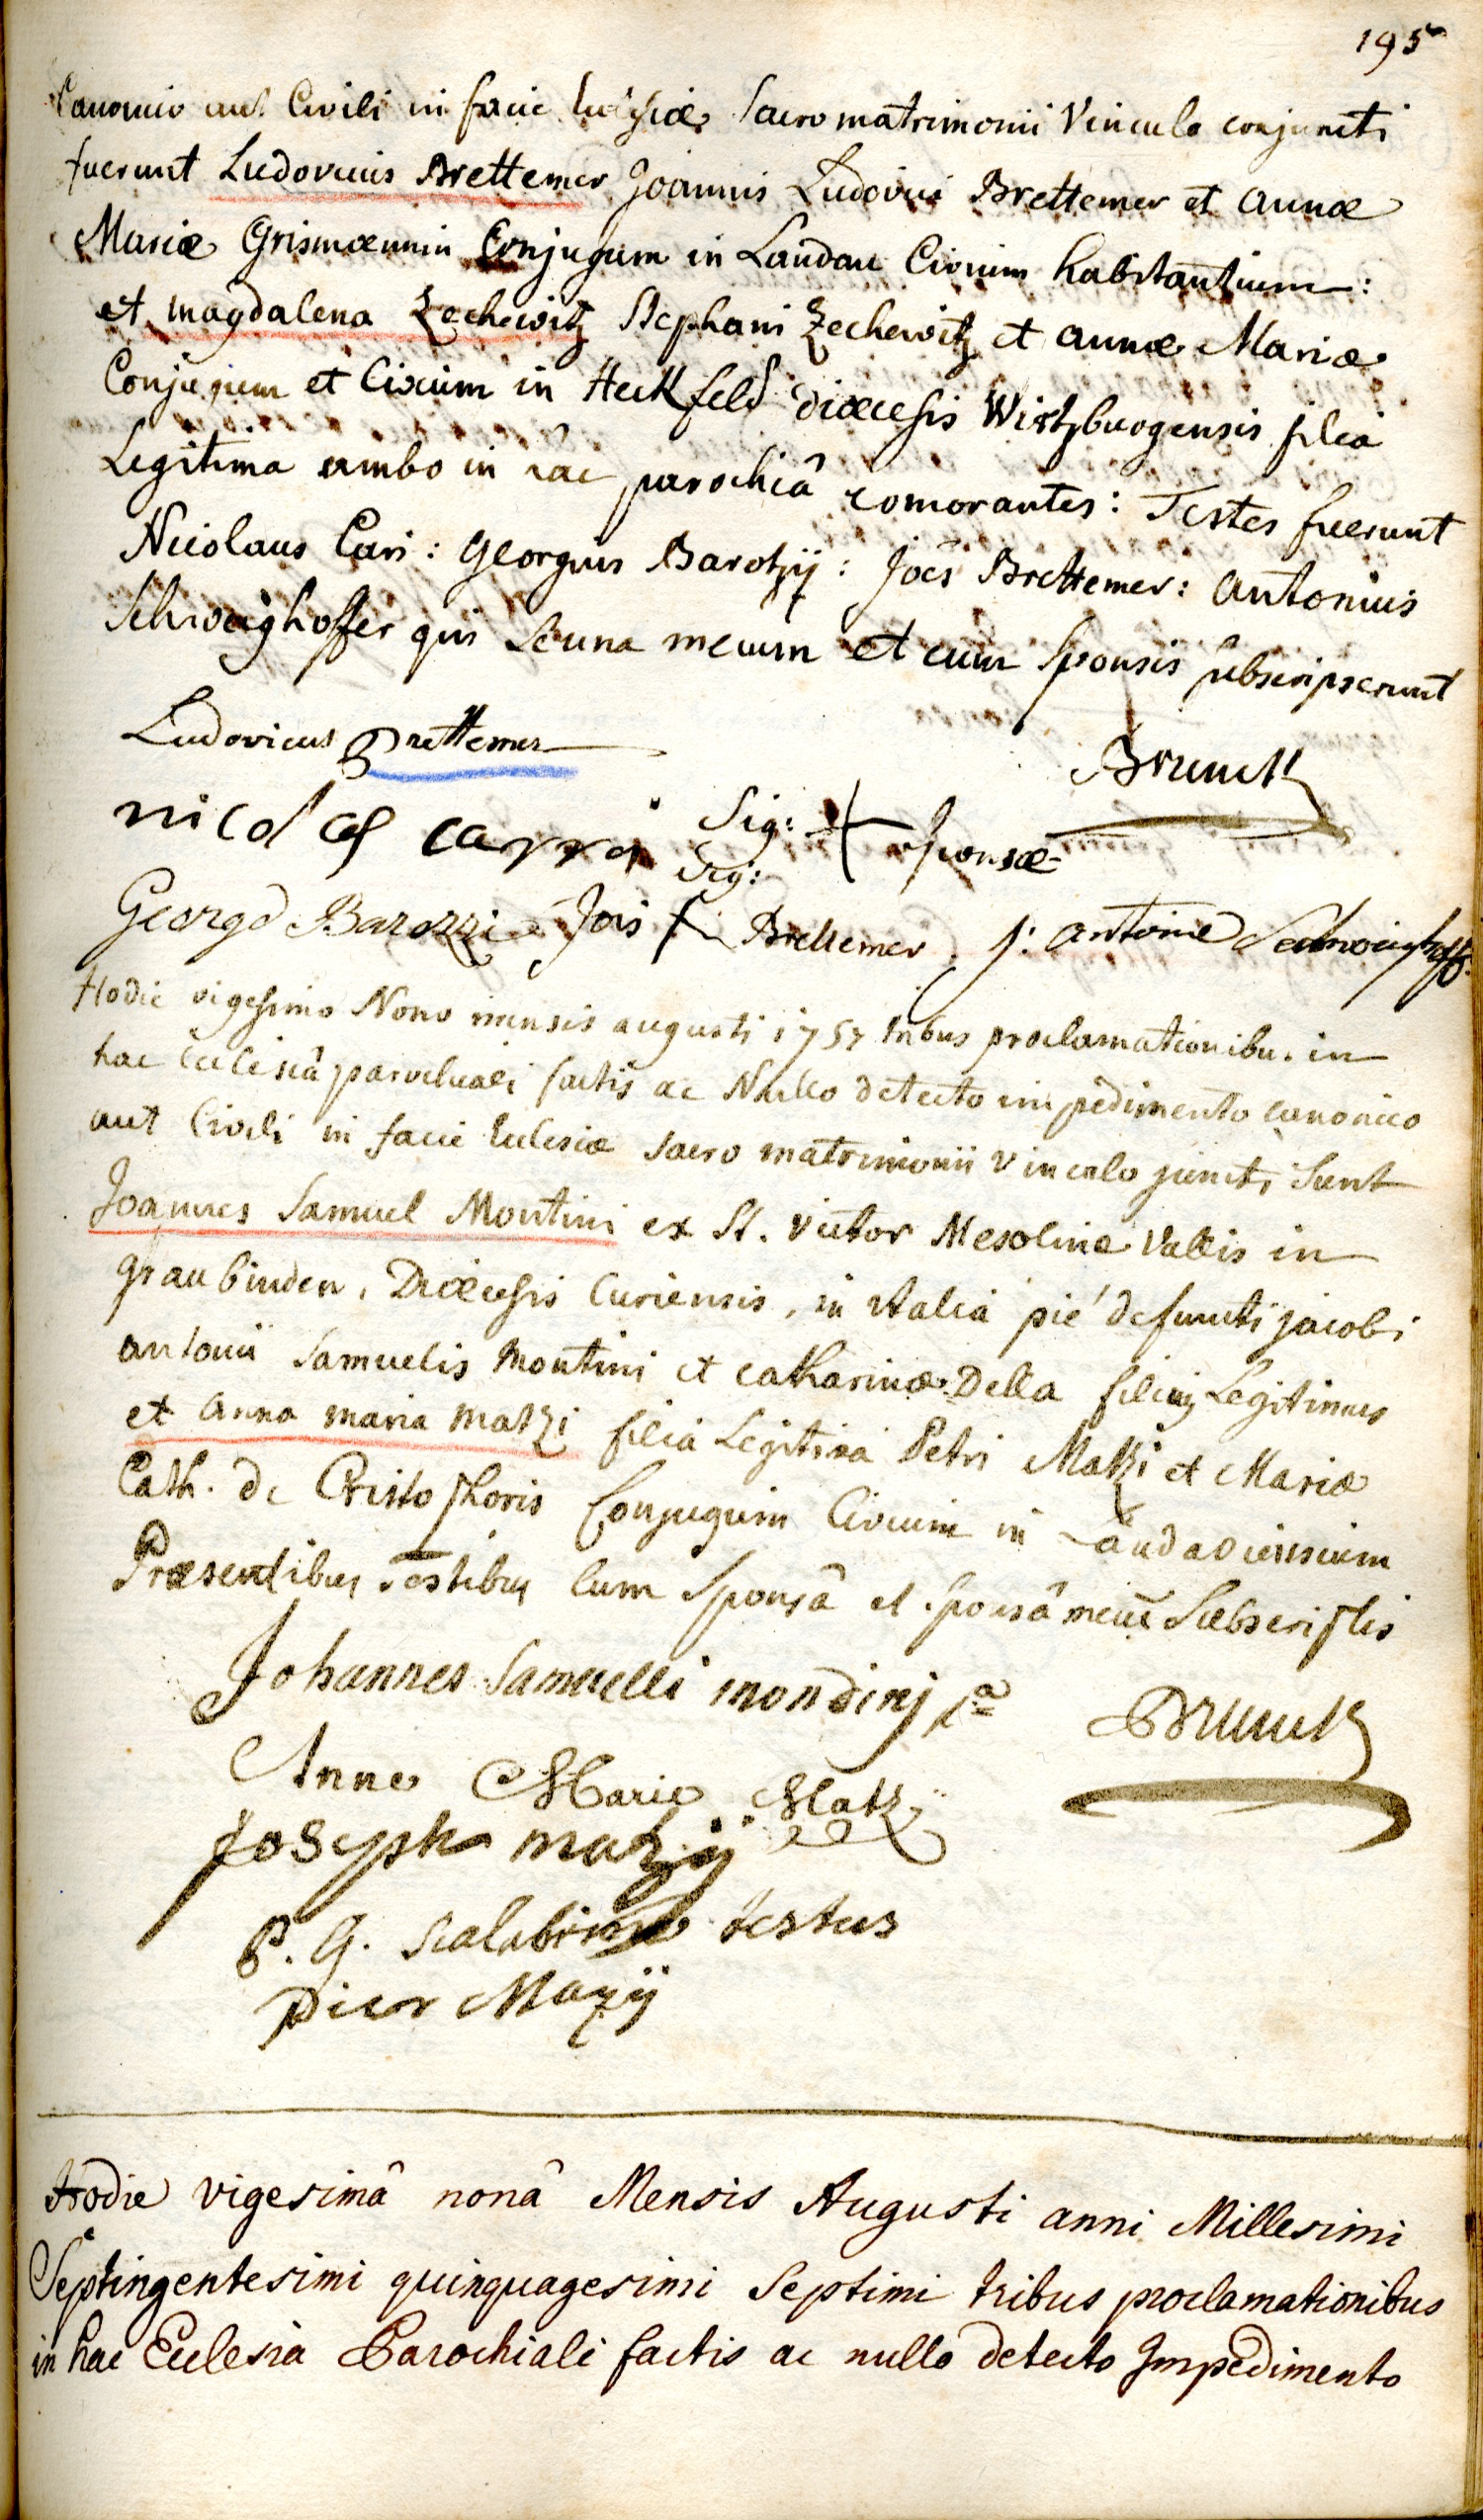 195
Canonico aut Civili in facie Ecclesiæ Sacro matrimonii Vinculo conjuncti
fuerunt Ludovicus Brettemer Joannis Ludovici Brettemer et annæ
Mariæ Grismænnin Conjugum in Landau Civium habitantium:
et magdalena Zechewitz Stephani Zechewitz et annæ Mariæ
Conjugum et Civium in Heckfeld diœcesis Wirtzburgensis filia
Legitima ambo in hac parochiâ comorantes: Testes fuerunt
Nicolaus Cari: Georgius Barotzij: Joês Brettemer: Antonius
Schweighoffer qui Se una mecum et cum Sponsis subscripserunt
Ludovicus Brettemer
Brunck
nicolas carra Sig: + Sponsæ
Sig:
George Barozzi Jois Brettemer j: antoine Schweighoff.
Hodie vigesimo Nono mensis augusti 1757 tribus proclamationibu. in
hac Ecclesiâ parochiali factis ac Nullo detecto impedimento canonico
aut Civili in facie Eclesiæ Sacro matrimonii Vinculo juncti Sunt
Joannes Samuel Montini ex St. Victor Mesolinæ Vallis in
graubinden, Diœcesis Curiensis, in italia pié defuncti jacobi
antonii Samuelis Montini et catharinæ Della filius Legitimus
et Anna maria matzi filia Legitima Petri Matzi et Mariæ
Cath. de Cristophoris Conjugum Civium in
Præsentibus Testibus Cum Sponsâ et sponsâ mecũ Subscriptis
Johannes Samuelli mondinj
Brunck
Anne Marie Matz
Joseph mazij
P. G. Scalabrino testus
Pier Mazij
Hodie vigesimâ nonâ Mensis Augusti anni Millesimi
Septingentesimi quinquagesimi Septimi tribus proclamationibus
in hac Ecclesia Parochiali factis ac nullo detecto Impedimento